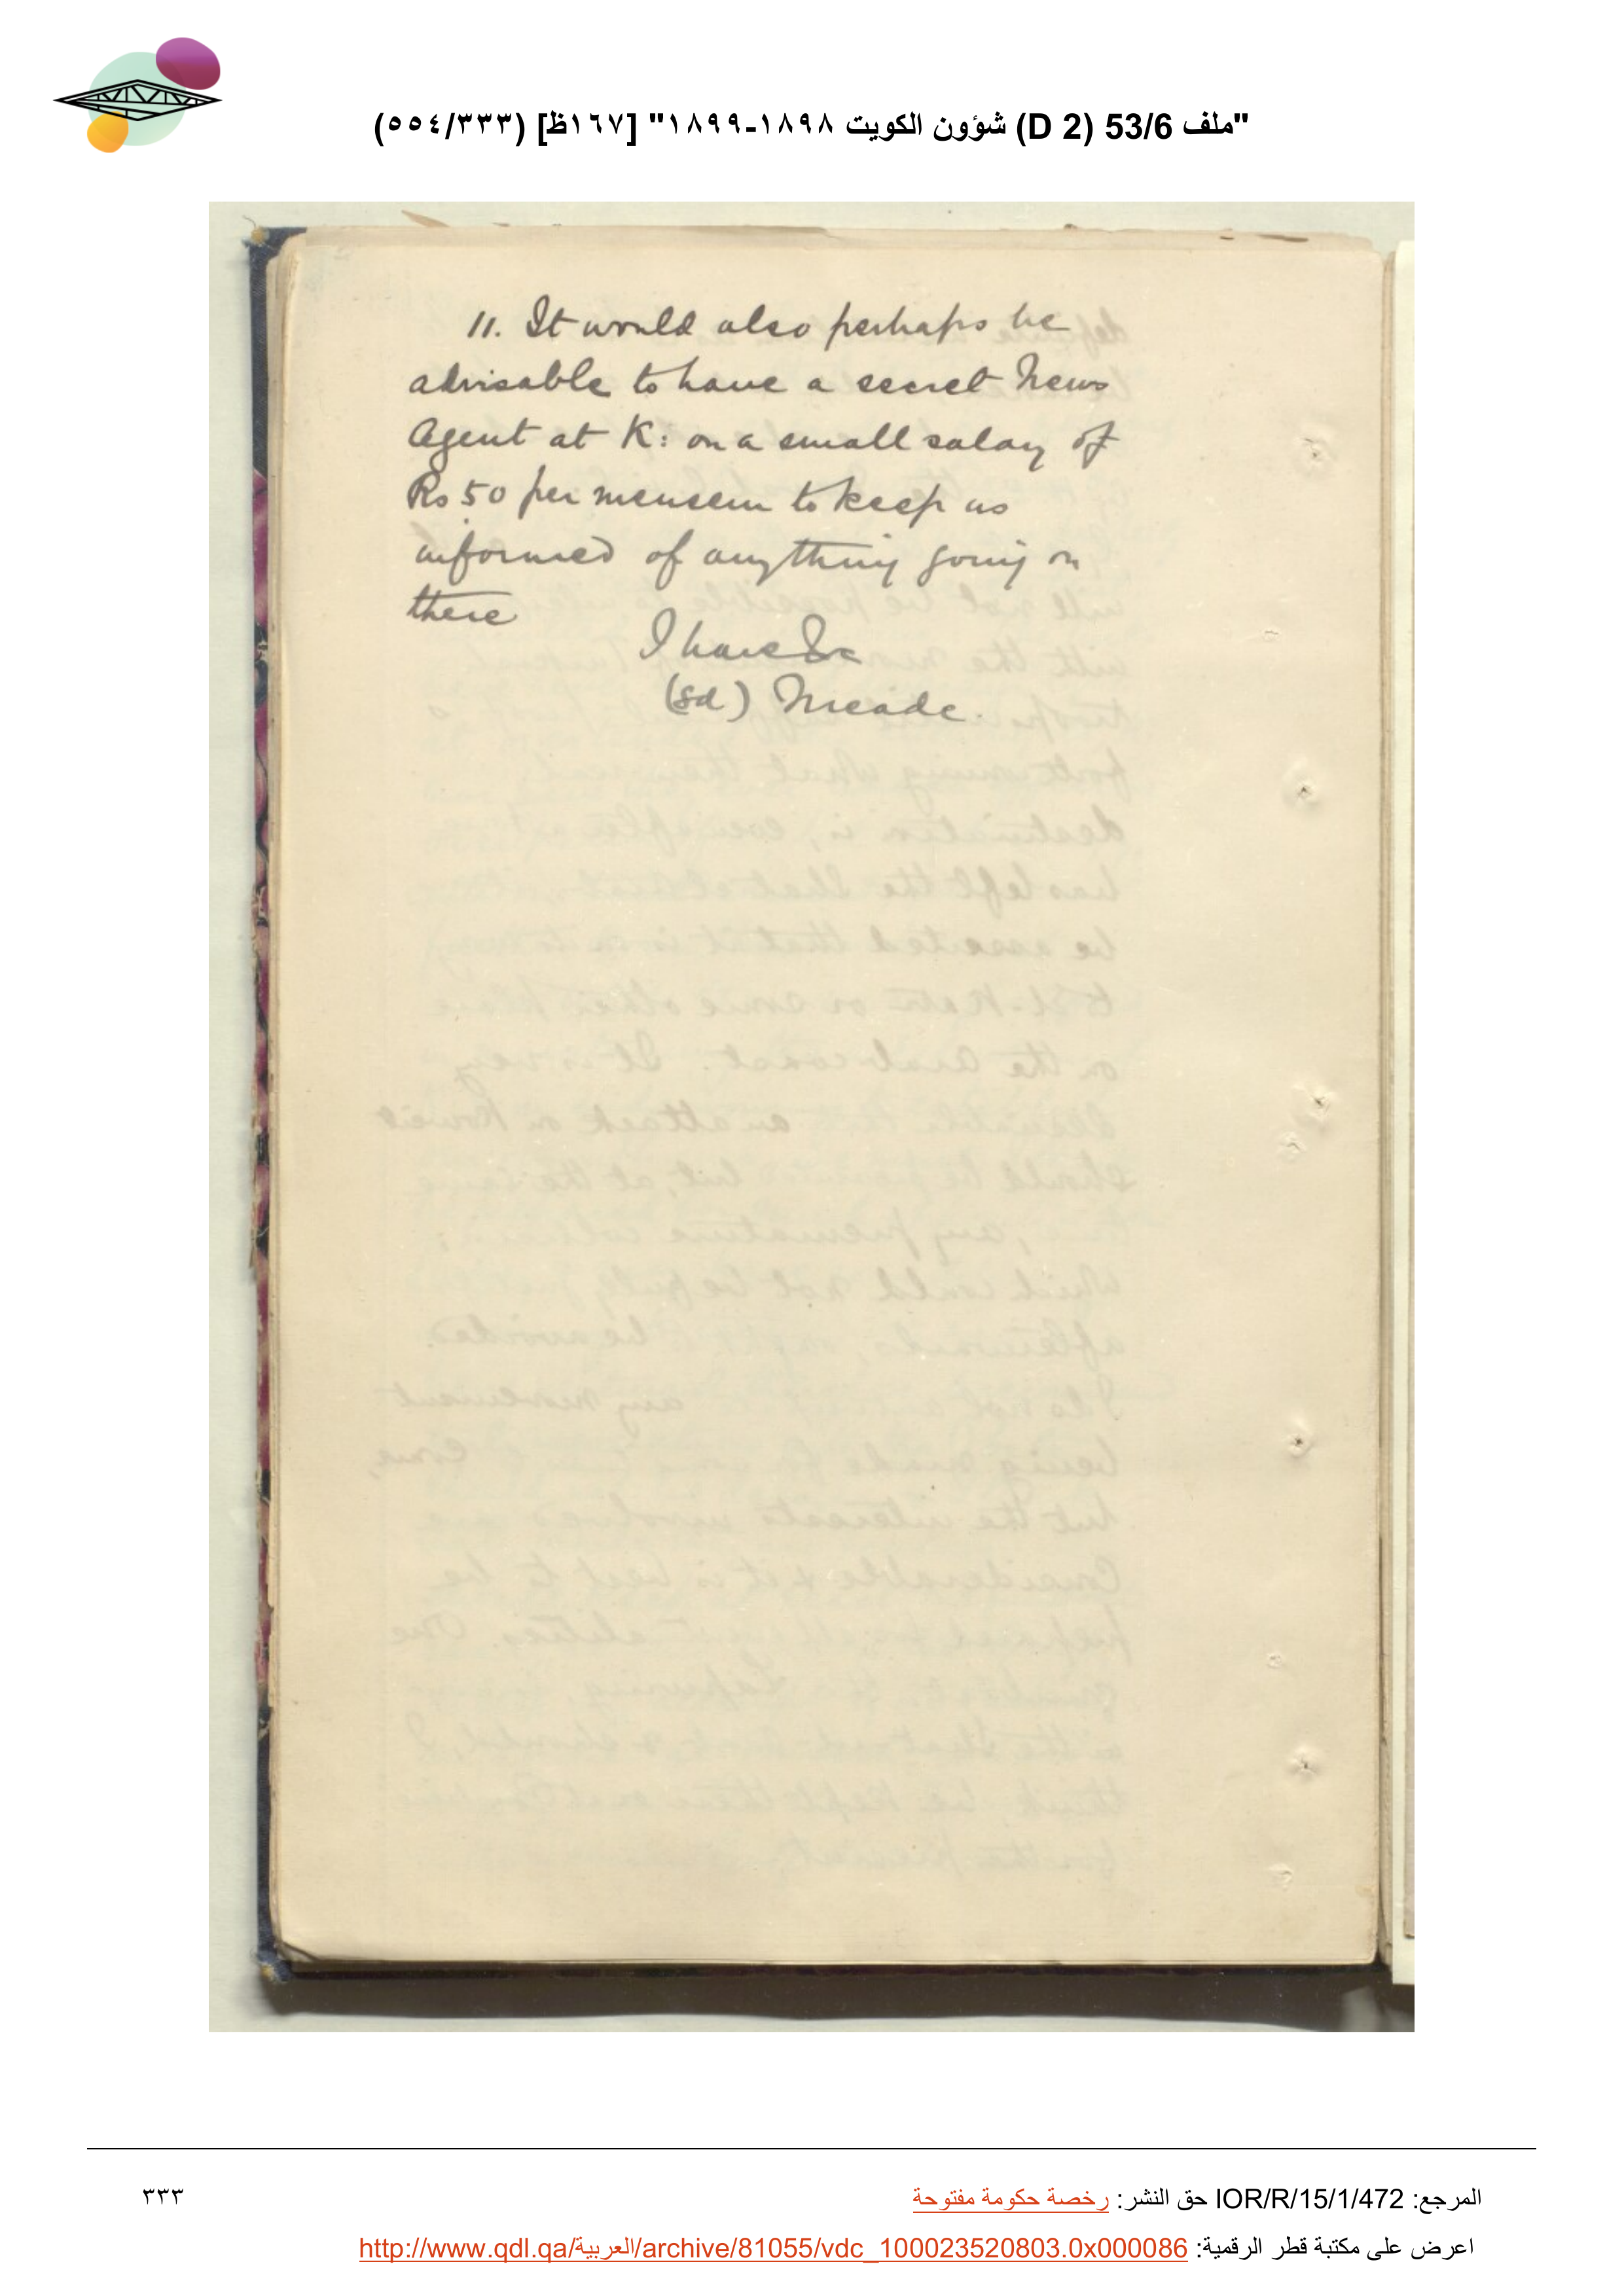 "ملف 53/6 (D 2) شؤون الكويت ١٨٩٨-١٨٩٩" [١٦٧ظ] (٥٥٤/٣٣٣)
11. It would also perhaps be
advisable to have a secret News
Agent at K: on a small salary of
Rs 50 per mensem to keep us
informed of anything going on
there
I have &c
(sd) Meade.
المرجع: IOR/R/15/1/472 حق النشر: رخصة حكومة مفتوحة
٣٣٣
اعرض على مكتبة قطر الرقمية: http://www.qdl.qa/العربية/archive/81055/vdc_100023520803.0x000086